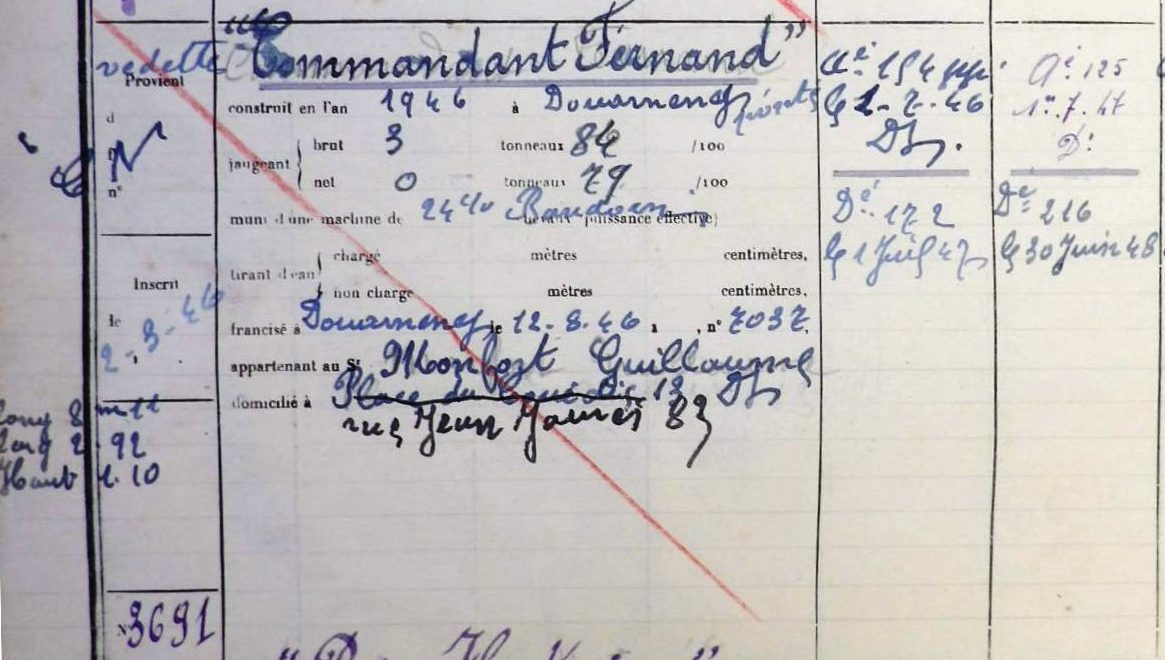 "Commandant Fernand"
vedette
Provient
d
N
n°
construit en l'an 1946 à Douarnenez
jaugeant
brut 3 tonneaux 84 /100
net 0 tonneaux 79 /100
muni d'une machine de 24 c/v Baudouin puissance effective)
tirant d'eau
chargé mètres centimètres,
non chargé mètres centimètres,
Inscrit
le 2-9-46
francisé à Douarnenez le 12-8-46 , n° 7037,
appartenant au Sr Monfort Guillaume
domicilié à Place du 12 Dz
rue Jean Jaurès 83
Long 8 m 11
Larg 2.92
Haut 1.10
N° 3691
154
2-7-46
Dz.
Dé 172
le 1 Juil 47
125
1er.7.47
De 216
le 30 Juin 48